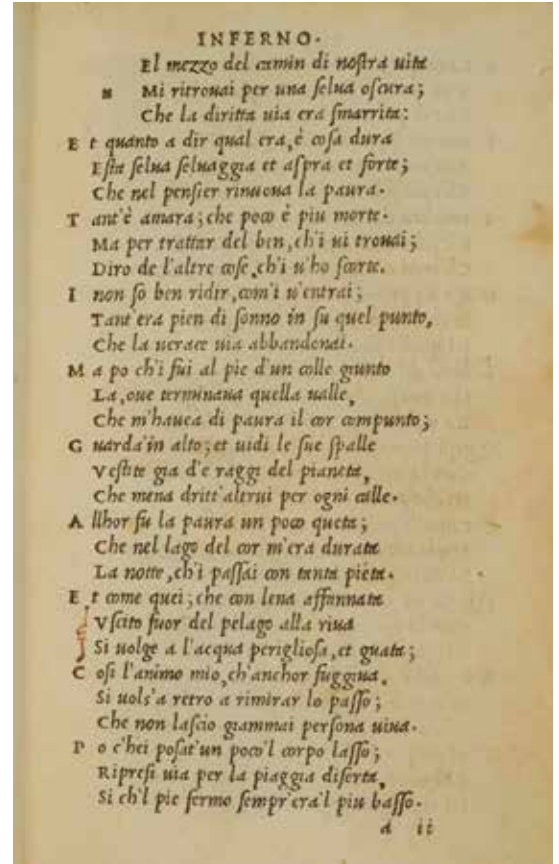 INFERNO.
El mezzo del camin di noſtra uita
N Mi ritrouai per una ſelua oſcura;
Che la diritta uia era ſmarrita:
E t quanto a dir qual era, è coſa dura
Eſta ſelua ſeluaggia et aſpra et forte;
Che nel penſier rinuoua la paura.
T ant'è amara; che poco è piu morte.
Ma per trattar del ben, ch'i ui trouai;
Diro de l'altre coſe, ch'i u'ho ſcorte.
I non ſo ben ridir, com'i u'entrai;
Tant'era pien di ſonno in ſu quel punto,
Che la uerace uia abbandonai.
M a po ch'i fui al pie d'un colle giunto
La, oue terminaua quella ualle,
Che m'hauea di paura il cor compunto;
G uarda'in alto; et uidi le ſue ſpalle
Veſtite gia d'e raggi del pianeta,
Che mena dritt'altrui per ogni calle.
A llhor fu la paura un poco queta;
Che nel lago del cor m'era durata
La notte, ch'i paſſai con tanta pieta.
E t come quei; che con lena affannata
Vſcito fuor del pelago alla riua
Si uolge a l'acqua periglioſa, et guata;
C oſi l'animo mio, ch'anchor fuggiua,
Si uolſ'a retro a rimirar lo paſſo;
Che non laſcio giammai perſona uiua.
P o c'hei poſat'un poco'l corpo laſſo;
Ripreſi uia per la piaggia diſerta,
Si ch'l pie fermo ſempr'era'l piu baſſo.
a ii